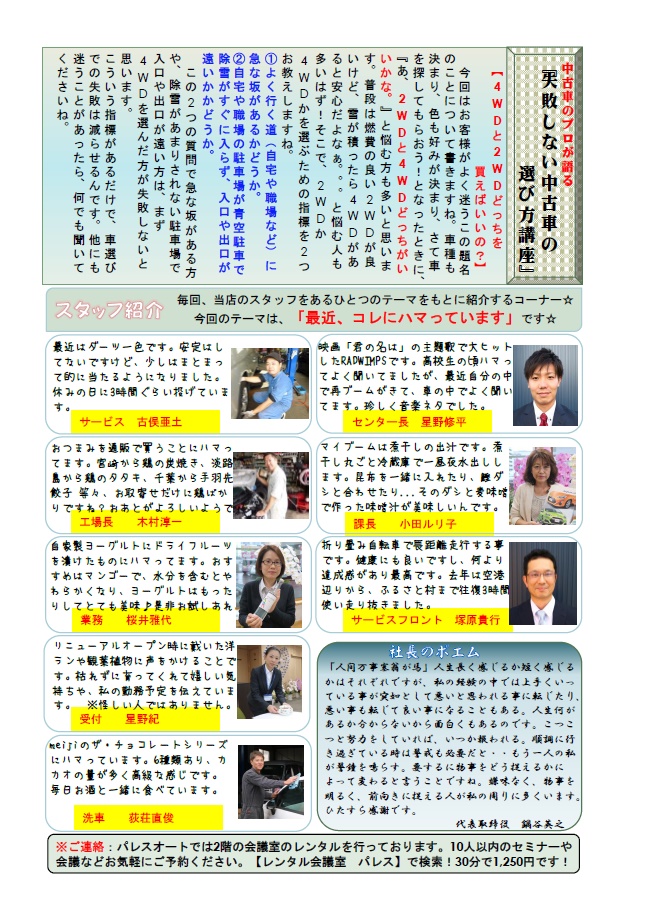 中古車のプロが語る
『失敗しない中古車の
選び方講座』
【4WDと2WDどっちを
買えばいいの？】
今回はお客様がよく迷うこの題名
のことについて書きますね。車種も
決まり、色も好みが決まり、さて車
を探してもらおう！となったときに、
『あ、2WDと4WDどっちがい
いかな。』と悩む方も多いと思いま
す。普段は燃費の良い2WDが良
いけど、雪が積ったら4WDがあ
ると安心だよなぁ。。と悩む人も
多いはず！そこで、2WDか
4WDかを選ぶための指標を2つ
お教えしますね。
①よく行く道（自宅や職場など）に
急な坂があるかどうか。
②自宅や職場の駐車場が青空駐車で
除雪がすぐに入らず、入口や出口が
遠いかかどうか。
この2つの質問で急な坂がある方
や、除雪があまりされない駐車場で
入口や出口が遠い方は、まず
4WDを選んだ方が失敗しないと
思います。
こういう指標があるだけで、車選び
での失敗は減らせるんです。他にも
迷うことがあったら、何でも聞いて
くださいね。
スタッフ紹介
毎回、当店のスタッフをあるひとつのテーマをもとに紹介するコーナー☆
今回のテーマは、「最近、コレにハマっています」です☆
最近はダーツ一色です。安定はし
てないですけど、少しはまとまっ
て的に当たるようになりました。
休みの日に3時間ぐらい投げていま
す。
サービス　古俣亜土
映画「君の名は」の主題歌で大ヒット
したRADWIMPSです。高校生の頃ハマっ
てよく聞いてましたが、最近自分の中
で再ブームがきて、車の中でよく聞い
てます。珍しく音楽ネタでした。
センター長　星野修平
おつまみを通販で買うことにハマっ
てます。宮崎から鶏の炭焼き、淡路
島から鶏のタタキ、千葉から手羽先
餃子 等々、お取寄せだけに鶏ばか
りですね？おあとがよろしいようで
工場長　木村淳一
マイブームは煮干しの出汁です。煮
干し丸ごと冷蔵庫で一昼夜水出しし
ます。昆布を一緒に入れたり、鰹ダ
シと合わせたり...そのダシと麦味噌
で作った味噌汁が美味しいんです。
課長　小田ルリ子
自家製ヨーグルトにドライフルーツ
を漬けたものにハマってます。おす
すめはマンゴーで、水分を含むとや
わらかくなり、ヨーグルトはもった
りしてとても美味♪是非お試しあれ
業務　桜井雅代
折り畳み自転車で長距離走行する事
です。健康にも良いですし、何より
達成感があり最高です。去年は空港
辺りから、ふるさと村まで往復3時間
使い走り抜きました。
サービスフロント　塚原貴行
リニューアルオープン時に戴いた洋
ランや観葉植物に声をかけることで
す。枯れずに育ってくれて嬉しい気
持ちや、私の勤務予定を伝えていま
す。　※怪しい人ではありません。
受付　星野紀
meijiのザ・チョコレートシリーズ
にハマっています。6種類あり、カ
カオの量が多く高級な感じです。
毎日お酒と一緒に食べています。
洗車　荻荘直俊
社長のポエム
「人間万事塞翁が馬」人生長く感じるか短く感じる
かはそれぞれですが、私の経験の中では上手くいっ
ている事が突如として悪いと思われる事に転じたり、
悪い事も転じて良い事になることもある。人生何が
あるか分からないから面白くもあるのです。こつこ
つと努力をしていれば、いつか報われる。順調に行
き過ぎている時は警戒も必要だと・・もう一人の私
が警鐘を鳴らす。要するに物事をどう捉えるかに
よって変わると言うことですね。嫌味なく、物事を
明るく、前向きに捉える人が私の周りに多くいます。
ひたすら感謝です。
代表取締役　鍋谷英之
※ご連絡：パレスオートでは2階の会議室のレンタルを行っております。10人以内のセミナーや
会議などお気軽にご予約ください。【レンタル会議室　パレス】で検索！30分で1,250円です！